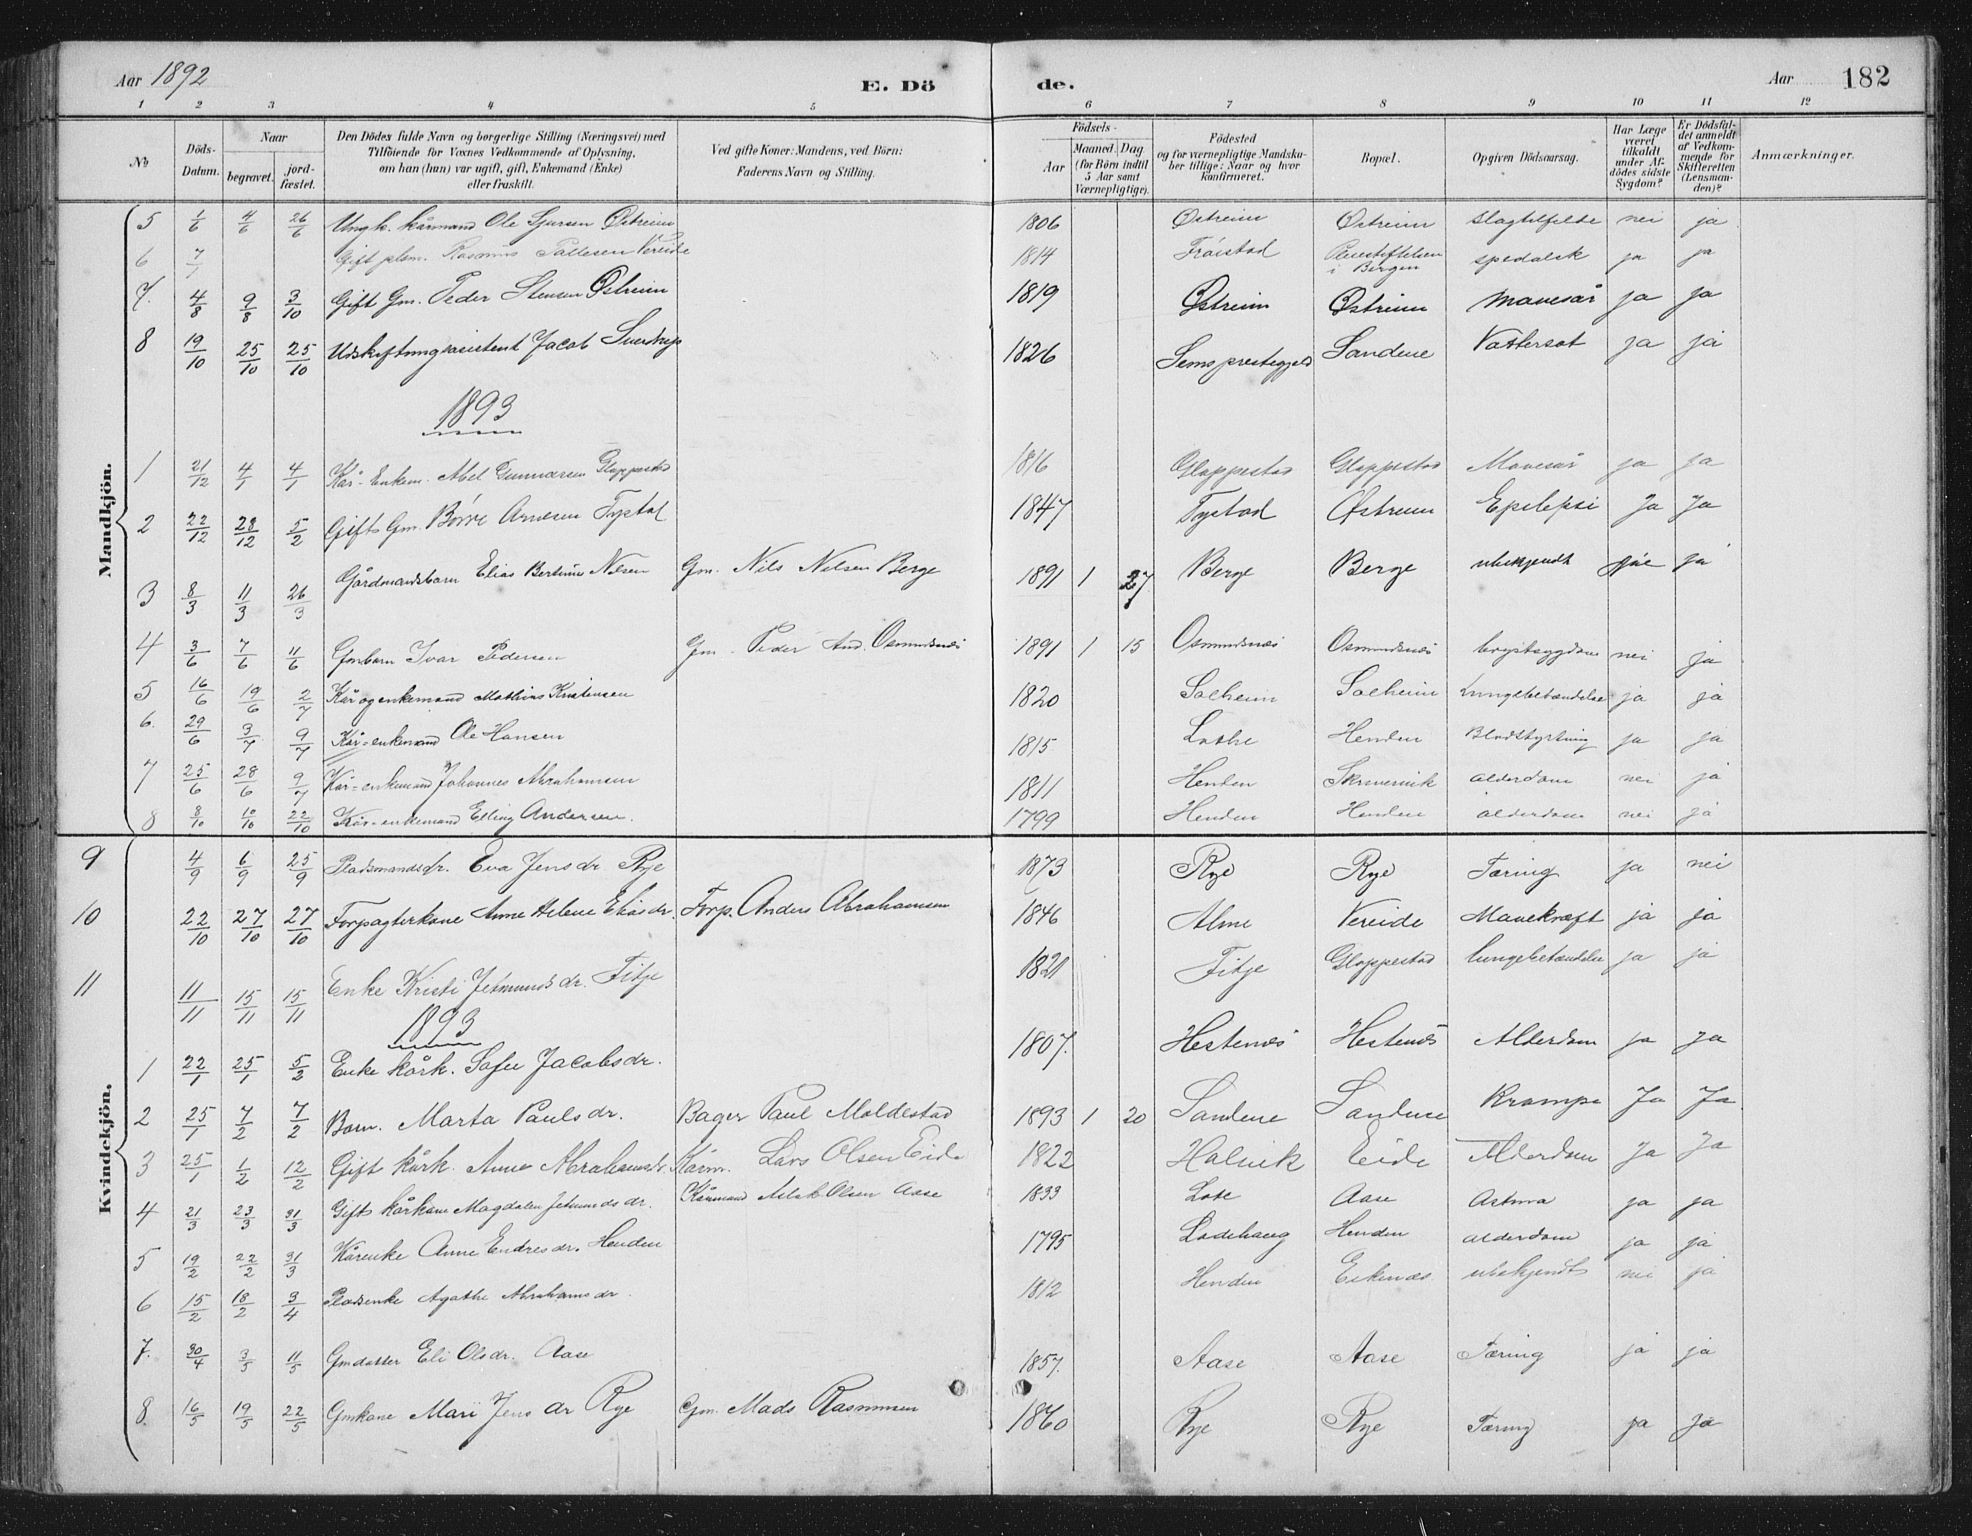 Aar 1892 E. Dö de. Aar 182
1 2 3 4 5 6 7 8 9 10 11 12
No
Döds-Datum.
Naar begravet. jordfæstet.
Den Dödes fulde Navn og borgerlige Stilling (Næringsvei) med Tilföiende for Voxnes Vedkommende af Oplysning, om han (hun) var ugift, gift, Enkemand (Enke) eller fraskilt.
Ved gifte Koner: Mandens, ved Börn: Faderens Navn og Stilling.
Födsels- Aar Maaned. Dag (for Börn indtil 5 Aar samt Værnepligtige).
Födested og for værnepligtige Mandskaber tillige: Naar og hvor konfirmeret.
Bopæl.
Opgiven Dödsaarsag.
Har Læge været tilkaldt under Afdödes sidste Sygdom?
Er Dödsfaldet anmeldt af Vedkommende for Skifteretten (Lensmanden)?
Anmærkninger.
Mandkjön.
5 1/6 4/6 26/6 Ungk. kårmand Ole Sjursen Østreim 1806 Østreim Østreim slagtilfelde nei ja
6 7/1 Gift plsm. Rasmus Pallesen Vereide 1814 Frøistad Pleiestiftelsen i Bergen spedalsk ja ja
7. 4/8 9/8 3/10 Gift Gm. Peder Stensen Østreim 1819 Østreim Østreim mavesår ja ja
8 19/10 25/10 25/10 Udskiftningsasistent Jacob 1826 Sems prestegjeld Sandene Vattersot ja ja
1893
1 21/12 4/1 4/1 Kår-Enkem. Abel Gunnarsen Gloppestad 1816 Gloppestad Gloppestad Mavesår ja ja
2 22/12 28/12 5/2 Gift Gm. Børre Arnesen Tystad 1847 Tystad Østreim Epelepsi Ja Ja
3 8/3 11/3 26/3 Gårdmandsbarn Elias Bertinus Nilsen Gm. Nils Nilsen Berge 1891 1 27 Berge Berge ubekjendt ja
4 3/6 7/6 11/6 Gmbarn Ivar Pedersen Gm. Peder And. Osmundsnes 1891 1 15 Osmundsnes Osmundsnes brystsygdom nei ja
5 16/6 19/6 2/7 Kår og enkemand Mathias Kristensen 1820 Solheim Solheim Lungebetændelse ja ja
6. 29/6 3/7 9/7 Kår-enkemand Ole Hansen 1815 Lothe Henden Blodstyrtning ja ja
7 25/6 28/6 9/7 Kår-enkemand Johannes Abrahamsen 1811 Henden Skrivervik alderdom nei ja
8 8/10 10/10 22/10 Kår-enkemand Elling Andersen. 1799 Henden Henden alderdom nei ja
Kvindekjön.
9 4/9 6/9 25/9 Pladsmandsdr. Eva Jensdr. Rye 1873 Rye Rye Tæring ja nei
10 22/10 27/10 27/10 Forpagterkone Anne Helene Eliasdr. Forp. Anders Abrahamsen 1846 Alme Vereide Mavekræft ja ja
11 11/11 15/11 15/11 Enke Kristi Jetmundsdr. Fitje 1821 Fitje Gloppestad lungebetændelse ja ja
1893
1 22/1 25/1 5/2 Enke kårk. Sofie Jacobsdr. 1807. Hestenes Hestenes Alderdom ja ja
2 25/1 7/2 7/2 Barn. Marta Paulsdr. Bager Paul Moldestad 1893 1 20 Sandene Sandene Krampe Ja Ja
3 25/1 1/2 12/2 Gift kårk. Anne Abrahamsdr. Kårm. Lars Olsen Eide 1822 Holvik Eide Alderdom Ja Ja
4 21/3 23/3 31/3 Gift kårkone Magdalen Jetmundsdr. Kårmand Aslak Olsen Aase 1833 Lote Aase Astma ja ja
5 19/2 22/2 31/3 Kårenke Anne Endresdr. Henden 1795 Lodehaug Henden alderdom ja ja
6 15/2 18/2 3/4 Pladsenke Agathe Abrahamsdr. 1812 Henden Eikenæs ubekjendt nei ja
7. 30/4 3/5 11/5 Gmdatter Eli Olsdr. Aase 1857. Aase Aase Tæring ja ja
8. 16/5 19/5 22/5 Gmkone Mari Jensdr Rye Gm. Mads Rasmussen 1860 Rye Rye Tæring ja ja